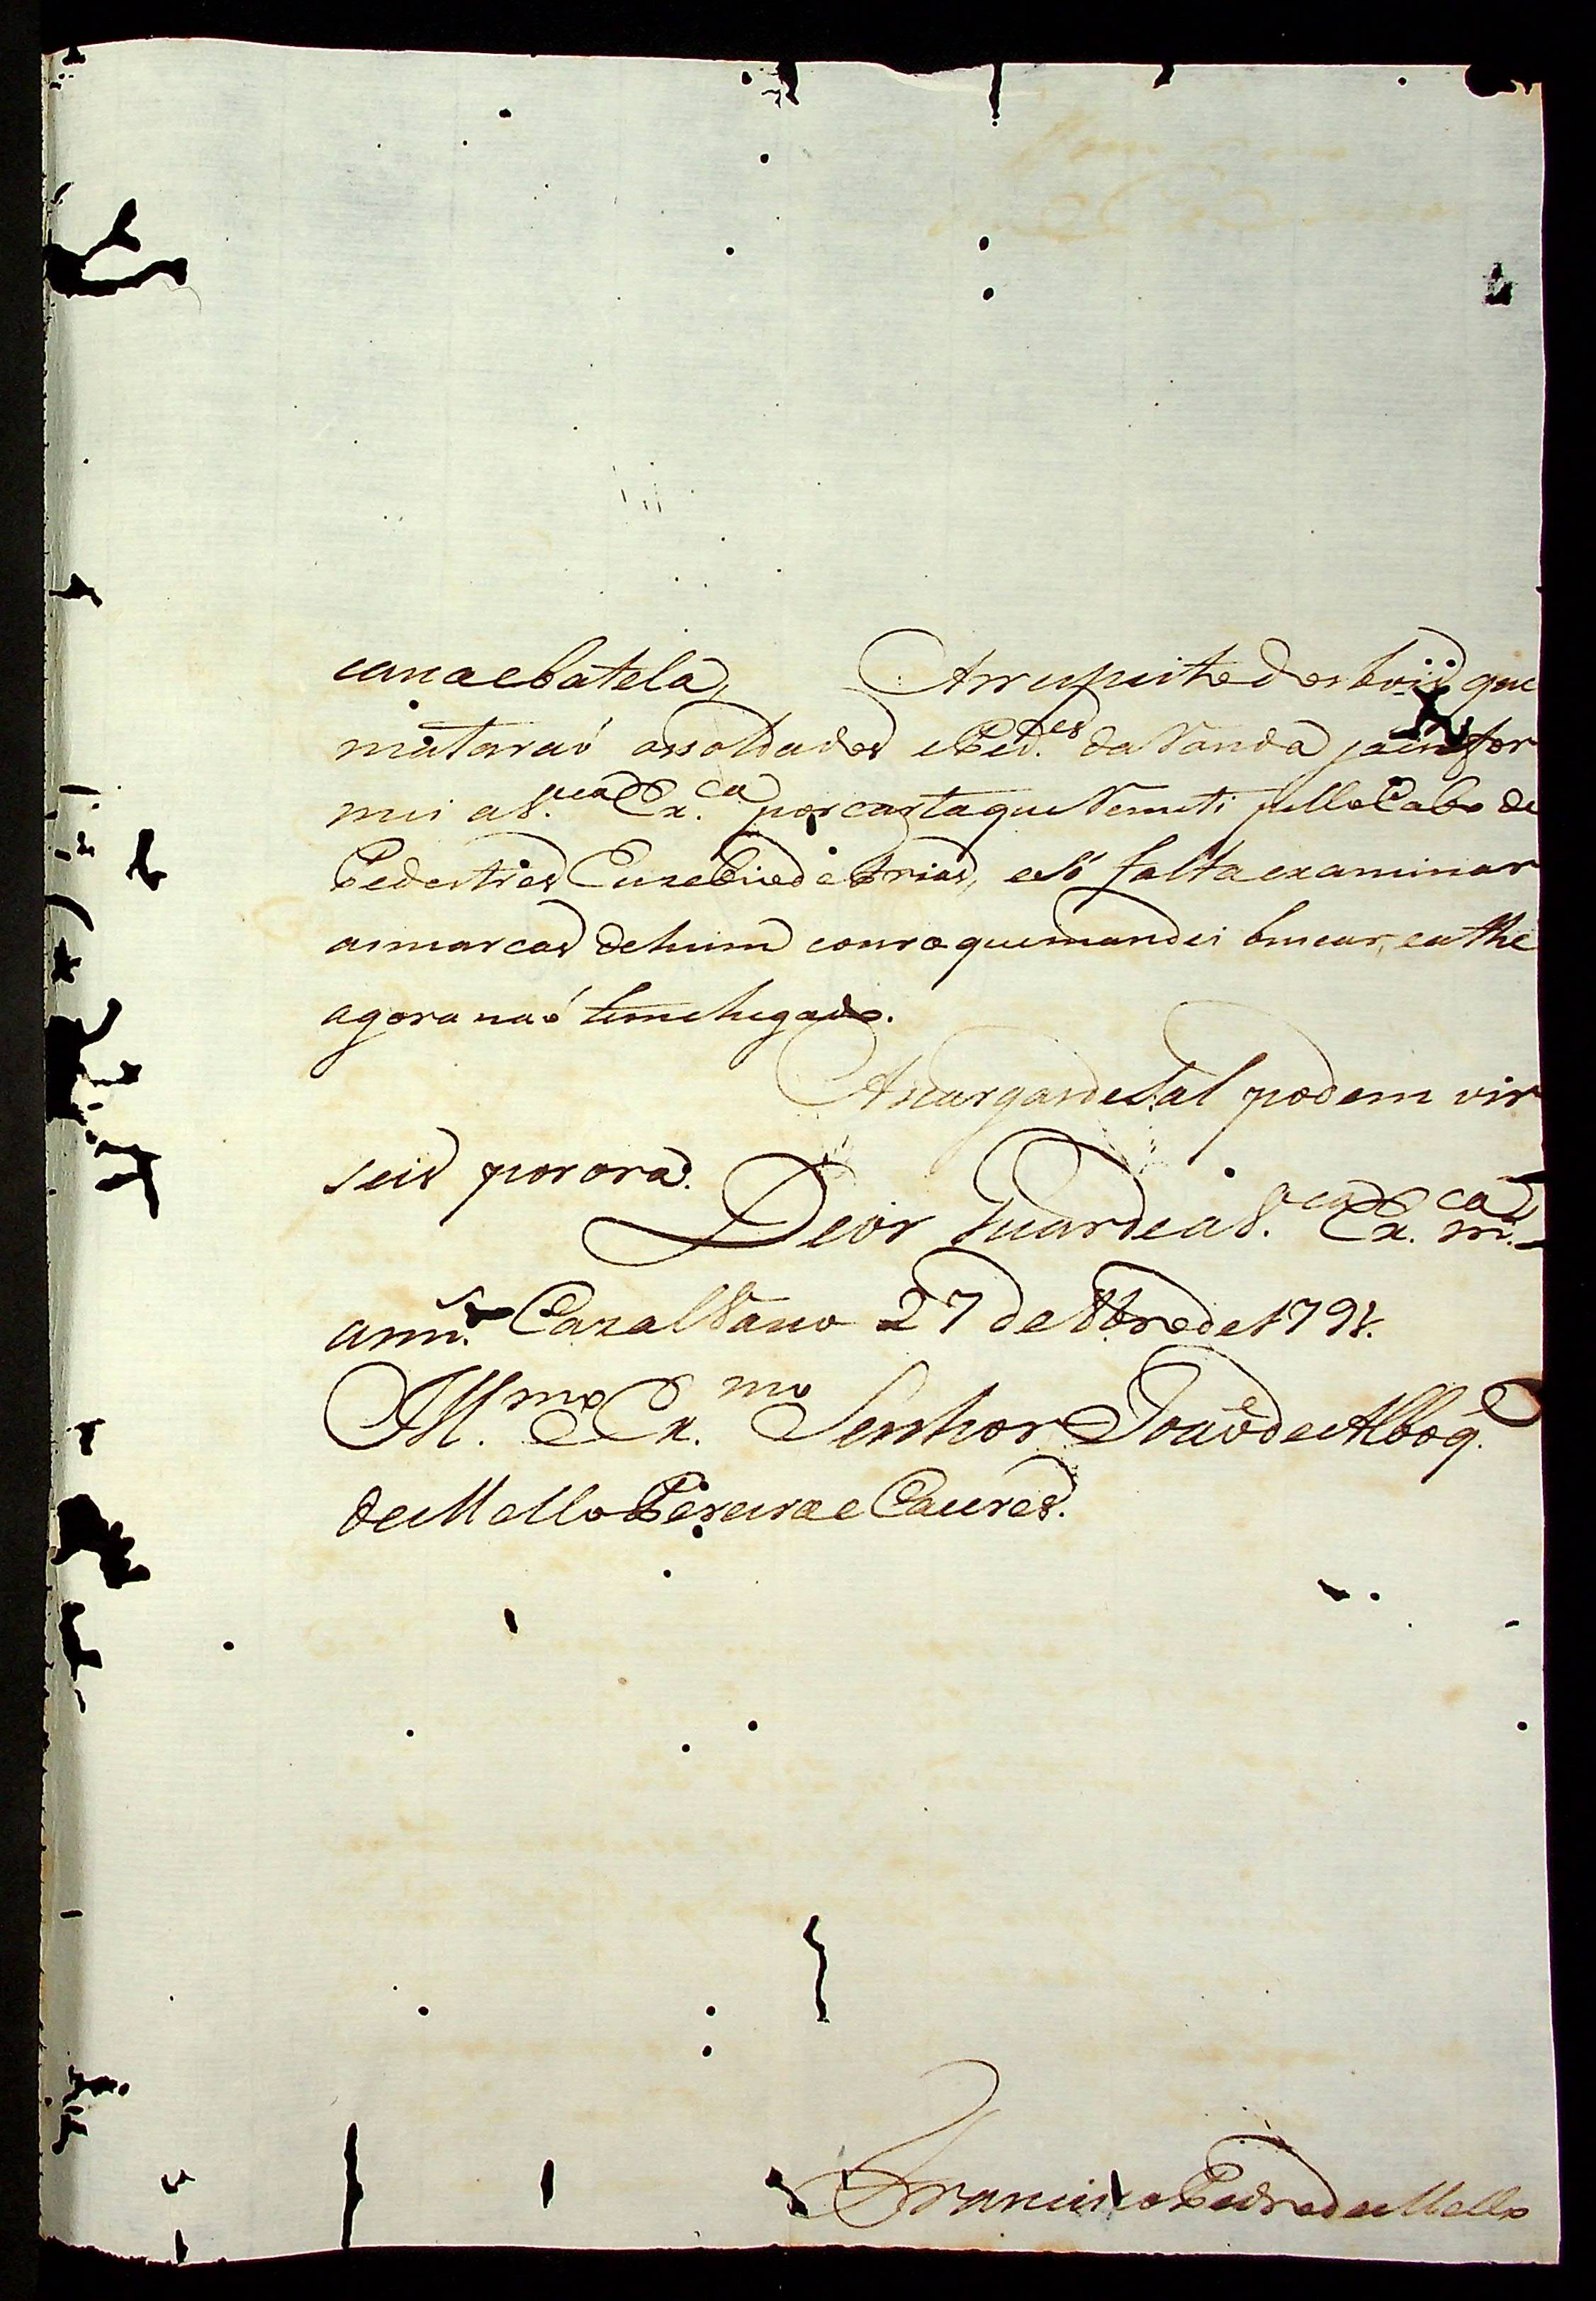 cana e batelaõ, Arrespeito dos bois que
mataraõ os soldados e Ped.es da Ronda ja infor
mei a V.a Ex.ca por carta que Remeti pello Cabo de
Pedestres Euzebio de Brias, e só falta examinar
as marcas de hum couro que mandei buscar, e athe
agora naõ tem chegado.
As cargas de Sal podem vir
seis por ora.
Deos Guarde a V.a Ex.ca m.s
ann.s Cazal Vasco 27 de 8bro de 1791.
Ill.mo e Ex.mo Senhor Joaõ de Albóq.e
de Mello Pereira e Caceres.
Francisco Pedro de Mello